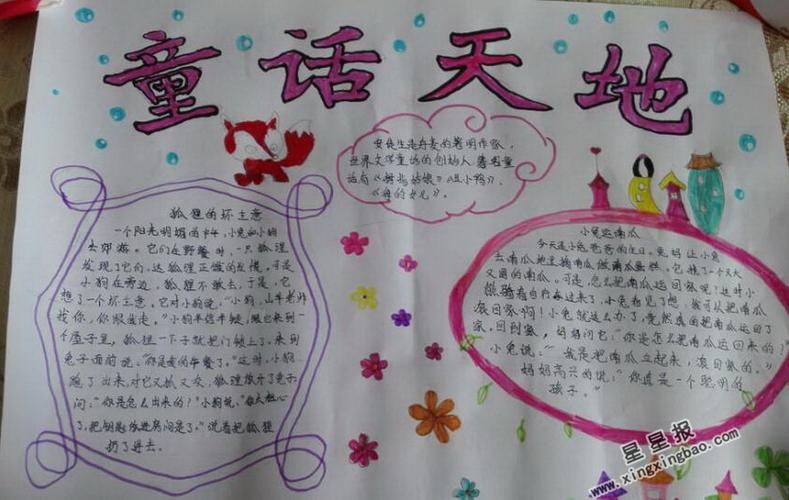 童话天地
安徒生是丹麦的著明作家,
世界文学童话的创始人 著名童
话有《拇指姑娘》《丑小鸭》、
《海的女儿》。
狐狸的坏主意
一个阳光明媚的中午,小兔和小狗
去郊游。它们在野餐时,一只狐狸
发现了它们,这狐狸正饿的发慌。可是
小狗在旁边,狐狸不敢去,于是,它
想了一个坏主意。它对小狗说:“小狗,山羊老师
找你,你跟我走。”小狗半信半疑,跟它来到一
个屋子里,狐狸一下子就把门锁上了。来到
兔子面前说:“你是我的午餐了。”这时,小狗
跑了出来,对它又抓又咬,狐狸放开了兔子
问:“你是怎么出来的?”小狗说:“你太粗心
了,把钥匙放进房间里了。”说着把狐狸
扔了再去。
小兔运南瓜
今天是小兔爸爸的生日。兔妈让小兔
去南瓜地里摘南瓜做南瓜蛋糕。它摘了一个又大
又圆的南瓜。可是,怎么把南瓜运回家呢!这时小
熊骑着自行车过来了,小兔看见了想:我可以把南瓜
滚回家啊!小兔就这么办了,竟然真的把南瓜运回了
家,回到家,妈妈问它:“你是怎么把南瓜运回来的?”
小兔说:“我是把南瓜立起来,滚回家的。”
妈妈高兴的说:“你真是一个聪明的
孩子。”
星星报
www.xingxingbao.com